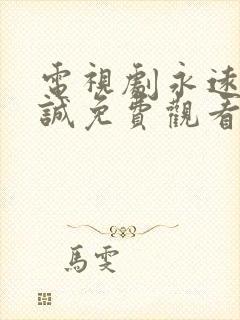 電視劇永遠
誠免費觀看
馬雯